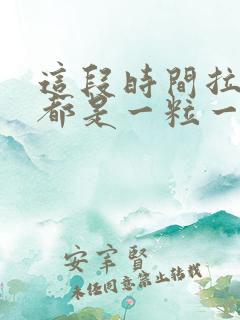 這段時間拉
都是一粒一
安寧賢
未經同意禁止轉載